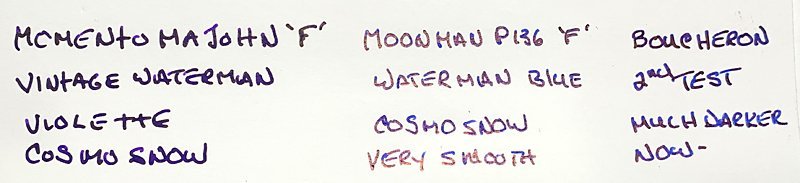 MCMENtO MAJOHN 'F'
VINtAGE WATERMAN
VIOLETTE
COSMO SNOW
MOONMAN P136 'F'
WATERMAN BLUE
COSMO SNOW
VERY SMOOTH
BOUCHERON
2nd TEST
MUCH DARKER
NOW-